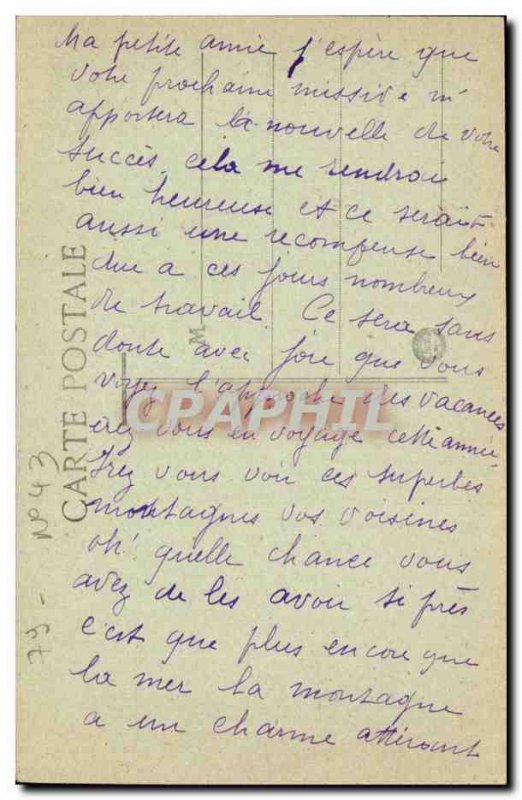 Ma petite amie j'espère que
votre prochaine missive m'
apportera la nouvelle de votre
succès, cela me rendrai
bien heureuse et ce serait
aussi une recompense bien
due a ces jours nombreux
de travail. Ce sera sans
doute avec joie que vous
voyez l'approche des vacances
irez vous en voyage cette année,
Irez vous voir ces superbes
montagnes vos voisines
oh! quelle chance vous
avez de les avoir si près
c'est que plus encore que
la mer la montagne
a un charme attirant
CARTE POSTALE
M
CPARAMA
79 - N° 43